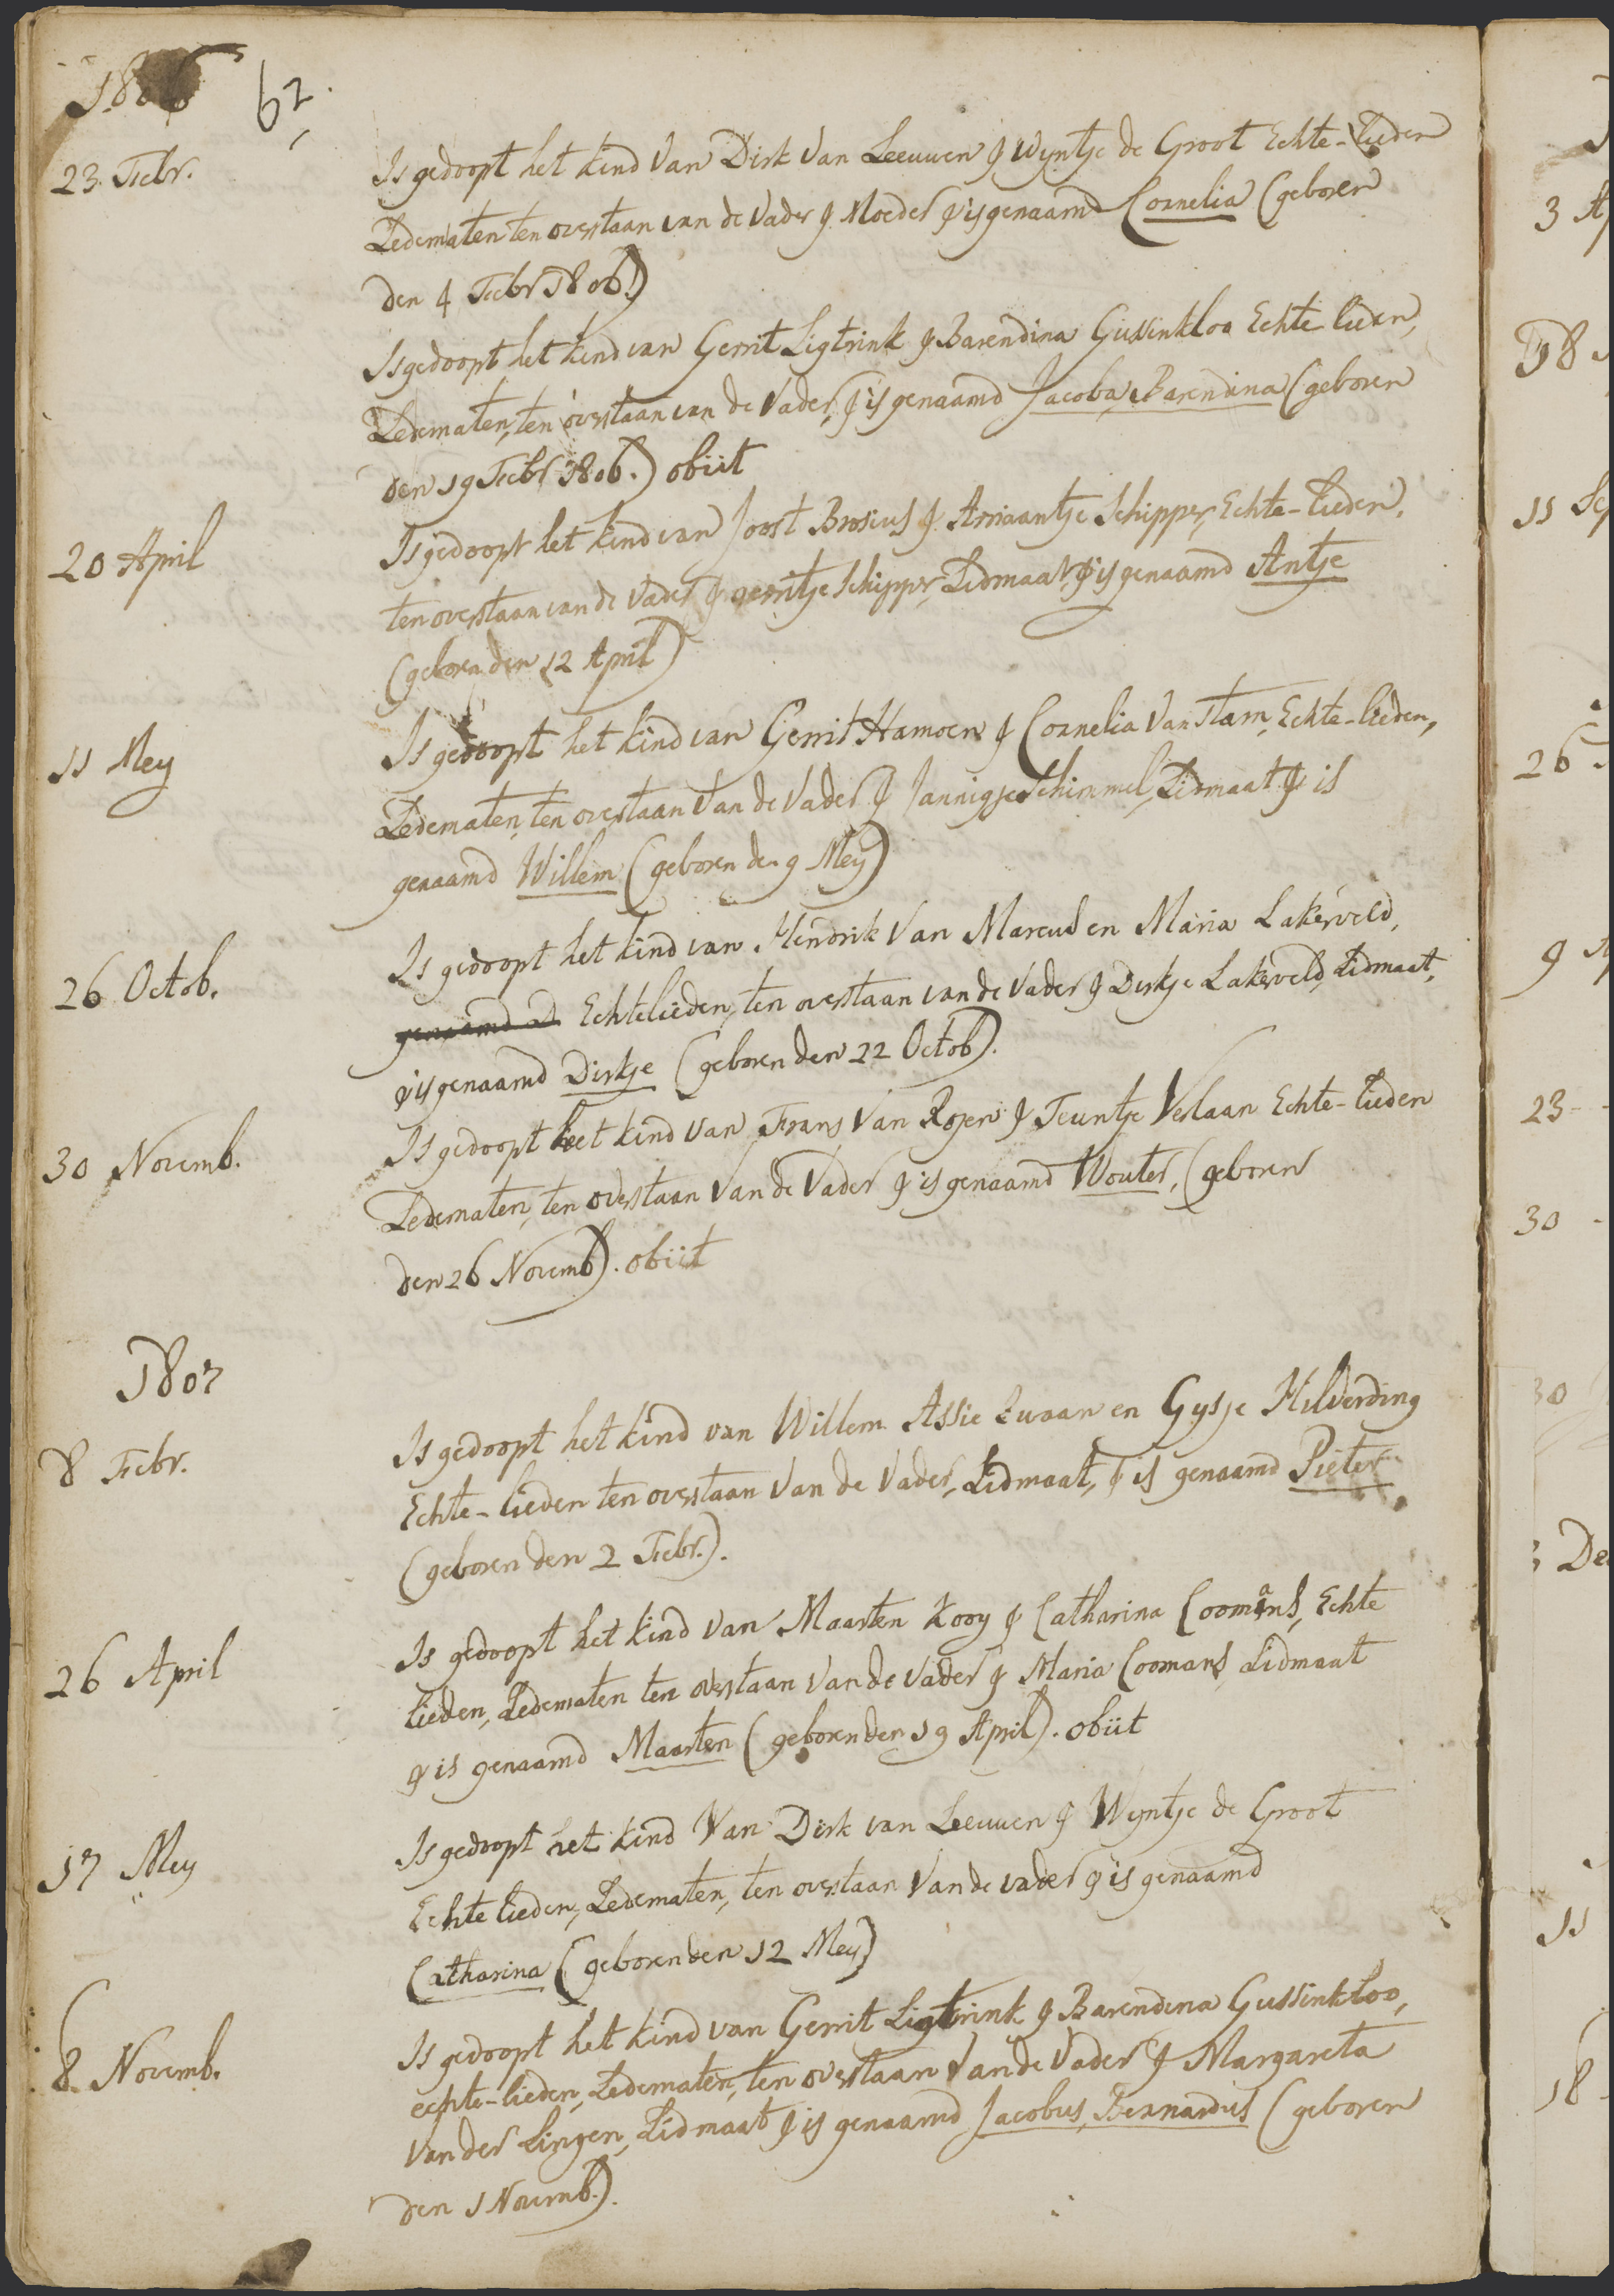 1806 62.
23 Febr. Is gedoopt het kind van Dirk van Leeuwen & Wyntje de Groot Echte-lieden
Ledematen ten overstaan van de vader & Moeder & is genaamd Cornelia (geboren
den 4 Febr 1806.)
Is gedoopt het kind van Gerrit Ligtrink & Barendina Gussinkloo Echte lieden,
Ledematen, ten overstaan van de Vader, & is genaamd Jacoba, Barendina (geboren
den 19 Febr 1806.) obiit
20 April Is gedoopt het kind van Joost Brosius & Arriaantje Schipper, Echte-lieden,
ten overstaan van de Vader & gerritje Schipper, Lidmaat, & is genaamd Antje
(geboren den 12 April)
11 Mey Is gedoopt het kind van Gerrit Hamoen & Cornelia Van Stam, Echte-lieden,
Ledematen, ten overstaan van de Vader & Jannigje Schimmel, Lidmaat & is
genaamd Willem (geboren den 9 Mey)
26 Octob. Is gedoopt het kind van Hendrik Van Marcus en Maria Lakerveld,
genaamd Echtelieden, ten overstaan van de Vader & Dirkje Lakerveld, Lidmaat,
& is genaamd Dirkje (geboren den 22 Octob).
30 Novemb. Is gedoopt het kind van Frans Van Rojen & Teuntje Verlaan Echte-lieden
Ledematen, ten overstaan van de Vader & is genaamd Wouter, (geboren
den 26 Novemb). obiit
1807
8 Febr. Is gedoopt het kind van Willem Assie en Gysje Hilverding
Echte-lieden ten overstaan van de Vader, Lidmaat, & is genaamd Pieter
(geboren den 2 Febr.).
26 April Is gedoopt het kind van Maarten Kooy & Catharina Coomans, Echte
lieden, Ledematen ten overstaan van de Vader & Maria Coomans Lidmaat
& is genaamd Maarten (geboren den 19 April). obiit
17 Mey Is gedoopt het kind Van Dirk van Leeuwen & Wyntje de Groot
Echte lieden, Ledematen, ten overstaan Van de vader & is genaamd
Catharina (geboren den 12 Mey)
8 Novemb. Is gedoopt het kind van Gerrit Ligtrink & Barendina Gussinkloo,
echte-lieden, Ledematen, ten overstaan Van de Vader & Margareta
van der Lingen, Lidmaat & is genaamd Jacobus, Bernardus (geboren
den 1 Novemb.).
3 Ap
18
11 Sep
26
9 Ap
23
30
30
Dec
11
18